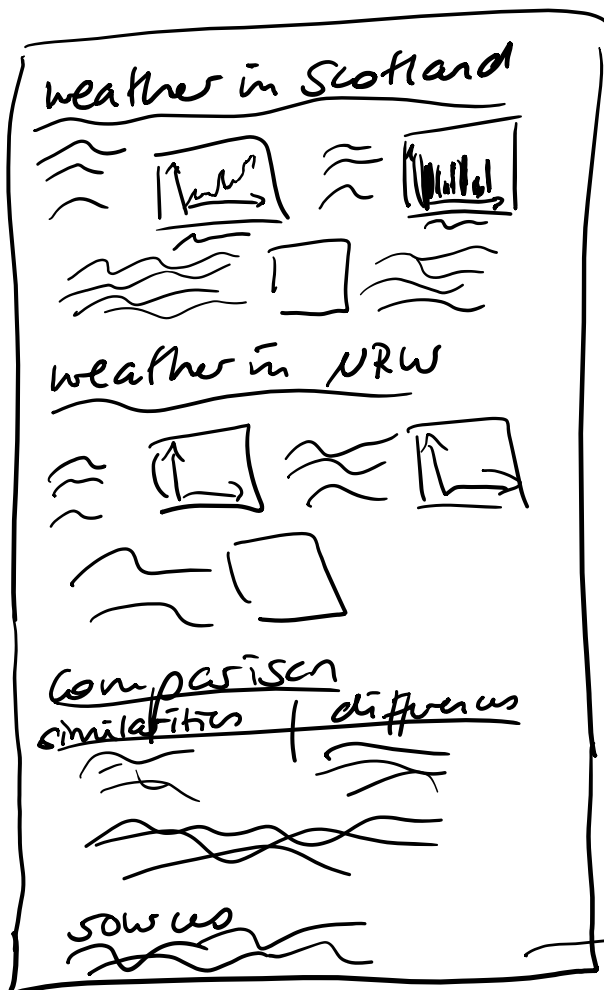 weather in Scotland
weather in NRW
Comparison
similarities | differences
sources